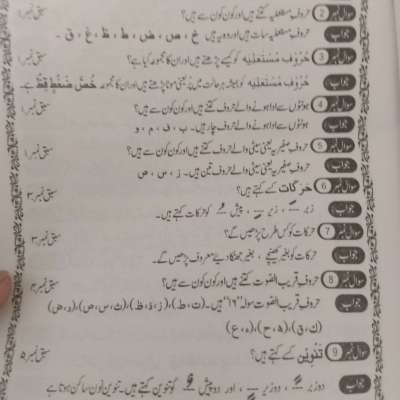 سوال نمبر 2 حروفِ مستعلیہ کتنے ہیں اور کون کون سے ہیں؟ سبق نمبر ۱
جواب حروفِ مستعلیہ سات ہیں اور وہ یہ ہیں خ ، ص ، ض ، ط ، ظ ، غ ، ق ۔
سوال نمبر 3 حُرُوفِ مُسْتَعْلِیَہ کو کیسے پڑھتے ہیں اور ان کا مجموعہ کیا ہے؟ سبق نمبر ۱
جواب حُرُوفِ مُسْتَعْلِیَہ کو ہمیشہ ہر حالت میں پُر یعنی موٹا پڑھتے ہیں اور ان کا مجموعہ خُصَّ ضَغْطٍ قِظْ ہے۔
سوال نمبر 4 ہونٹوں سے ادا ہونے والے حروف کتنے ہیں اور کون کون سے ہیں؟ سبق نمبر ۱
جواب ہونٹوں سے ادا ہونے والے حروف چار ہیں۔ ب ، ف ، م ، و
سوال نمبر 5 حروفِ صفیریہ یعنی سیٹی والے حروف کتنے ہیں اور کون کون سے ہیں؟ سبق نمبر ۱
جواب حروفِ صفیریہ یعنی سیٹی والے حروف تین ہیں۔ ز ، س ، ص
سوال نمبر 6 حَرَکَات کسے کہتے ہیں؟ سبق نمبر ۳
جواب زبر ــَـ ، زیر ــِـ ، پیش ــُـ کو حرکات کہتے ہیں۔
سوال نمبر 7 حرکات کو کس طرح پڑھیں گے؟ سبق نمبر ۳
جواب حرکات کو بغیر کھینچے ، بغیر جھٹکا دیے معروف پڑھیں گے۔
سوال نمبر 8 حروفِ قریب الصوت کتنے ہیں اور کون کون سے ہیں؟ سبق نمبر
جواب حروفِ قریب الصوت سولہ "۱۶" ہیں۔ (ت،ط)، (ز،ذ،ظ)، (ث،س،ص)، (د،ض)
(ک،ق)، (ہ،ح)، (ء،ع)
سوال نمبر 9 تَنْوِیْن کسے کہتے ہیں؟ سبق نمبر ۵
جواب دو زبر ــًـ ، دو زیر ــٍـ ، اور دو پیش ــٌـ کو تنوین کہتے ہیں۔ تنوین نون ساکن ہوتا ہے